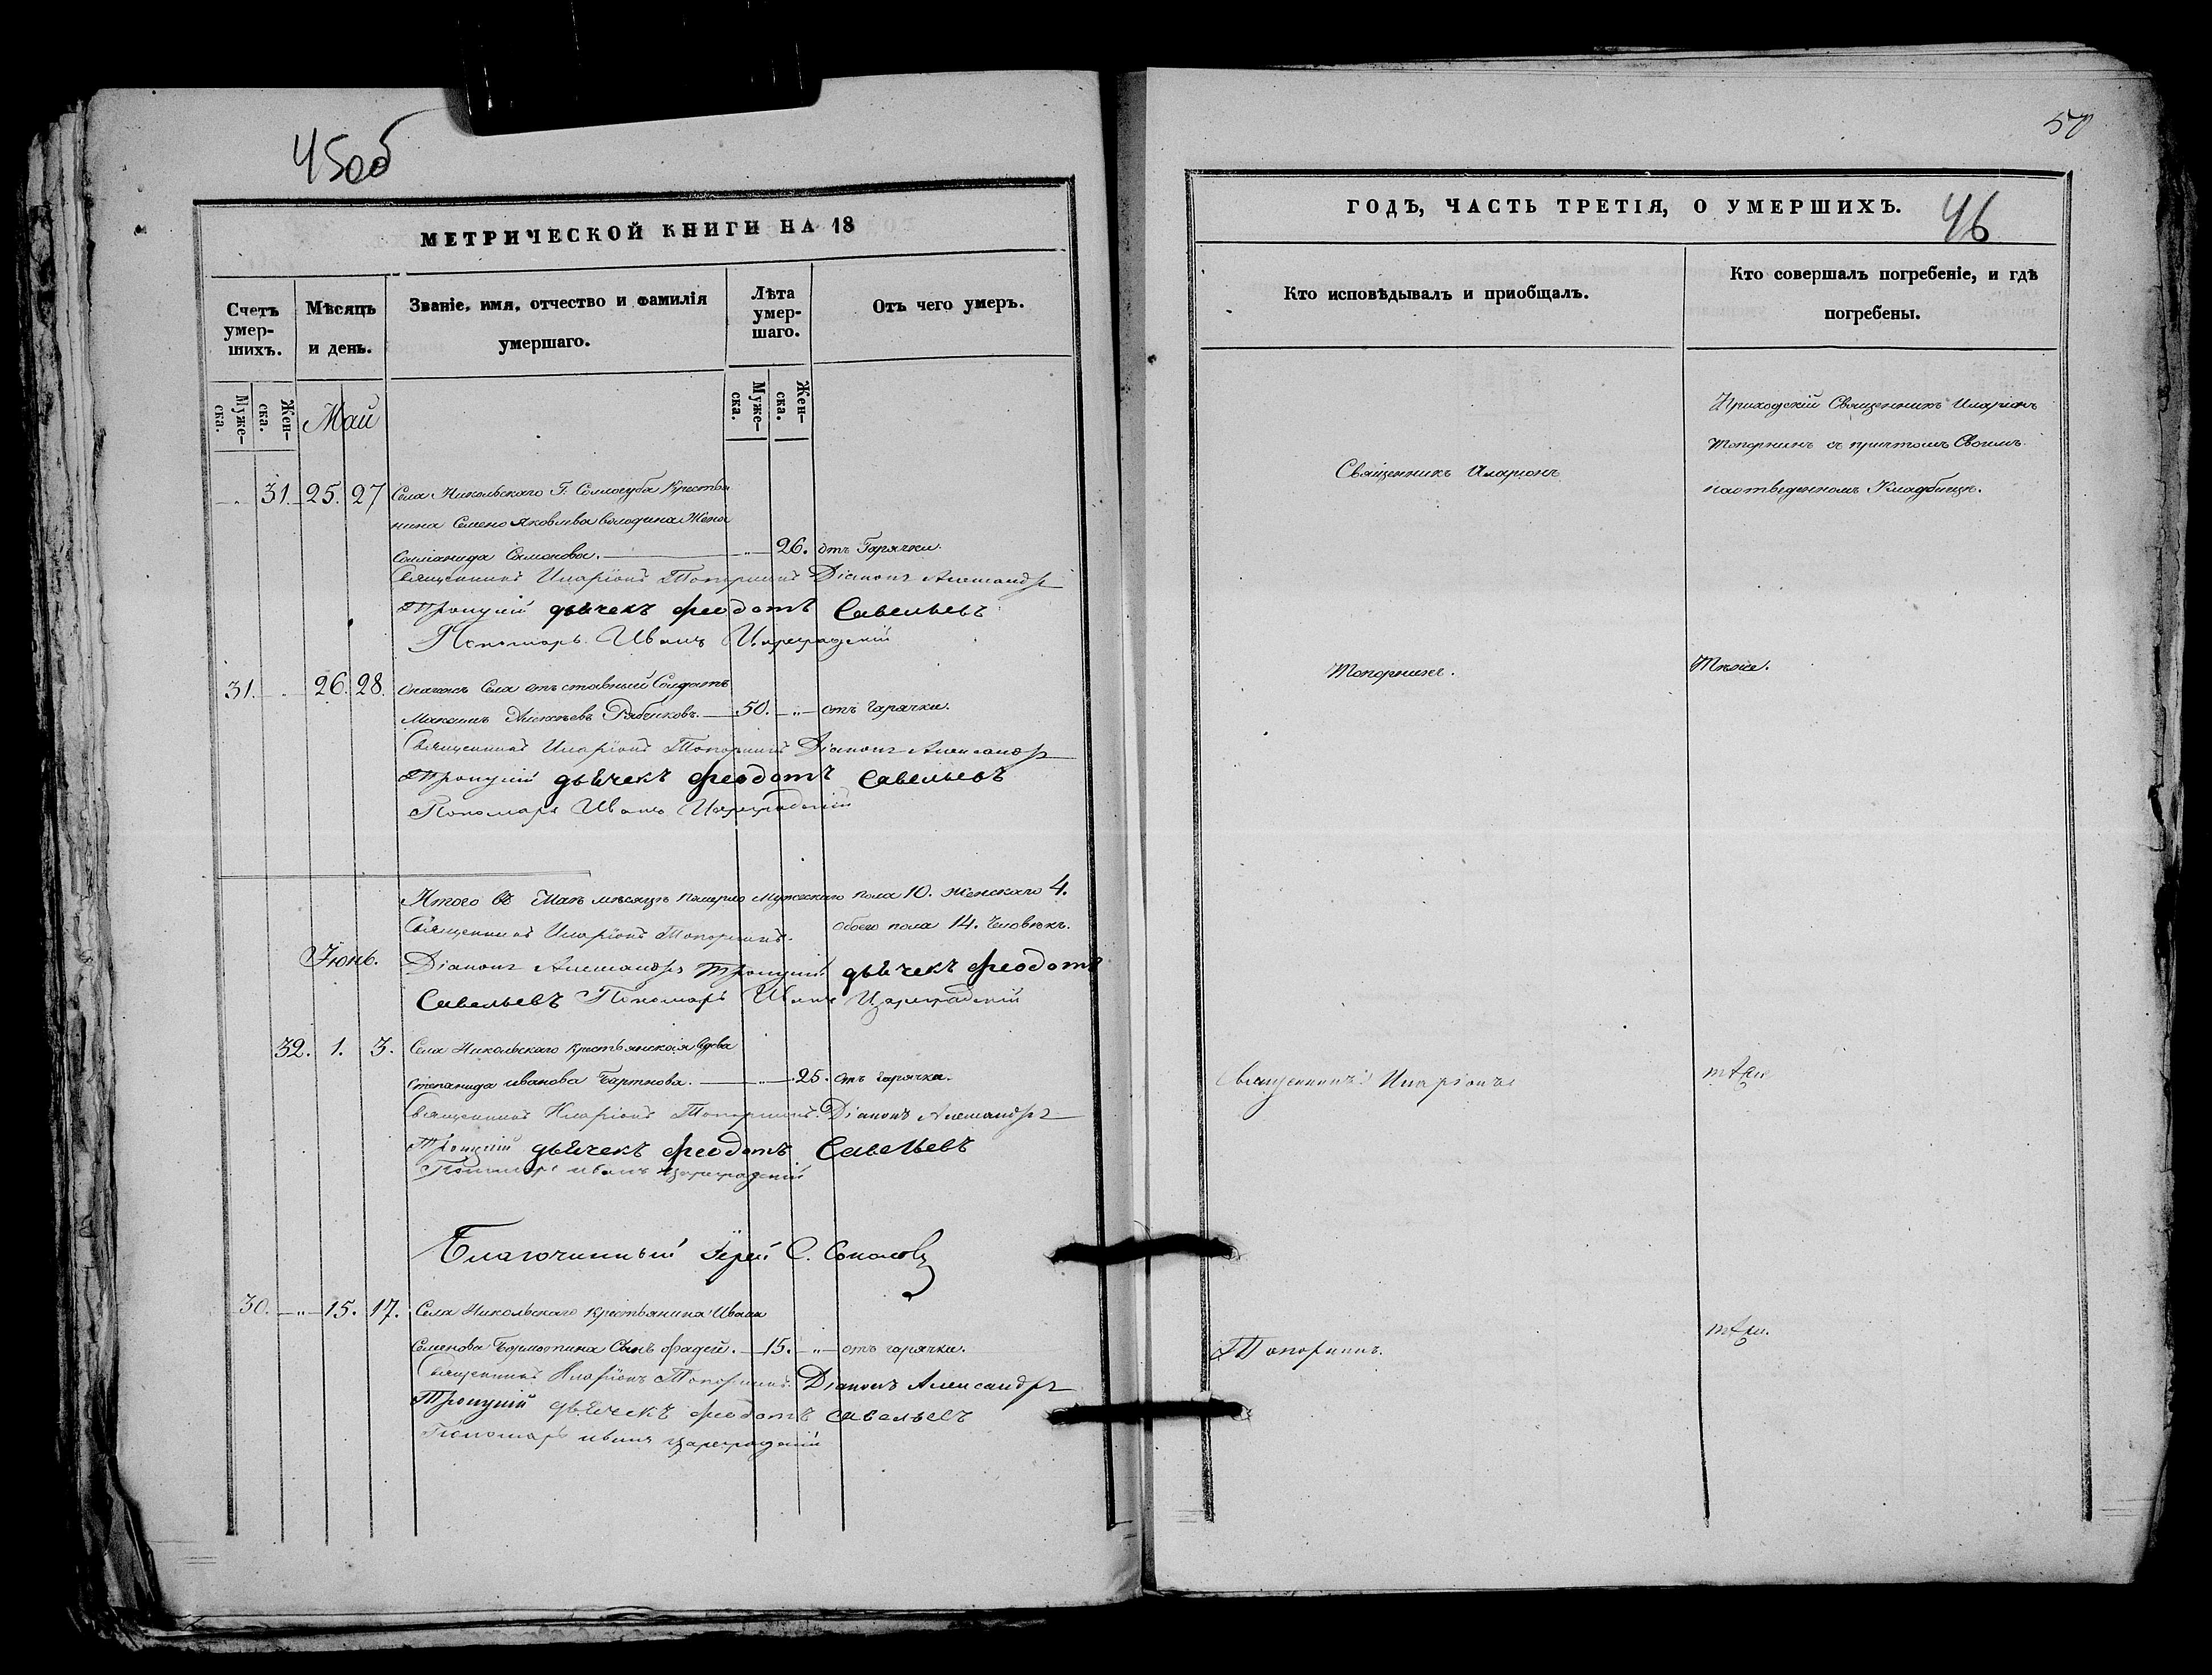 45об
МЕТРИЧЕСКОЙ КНИГИ НА 18
Счетъ умер-шихъ.
Мѣсяцъ и день.
Званіе, имя, отчество и фамилія умершаго.
Лѣта умер-шаго.
Отъ чего умеръ.
Муже-ска.
Жен-ска.
Май
Муже-ска.
Жен-ска.
31. 25. 27 Села Никольскаго Г. Соллогуба Крестья
нина Семено Яковлева Володина Жена
Соломанида Самонова. 26. отъ Горячки.
Священникъ Иларіонъ Топорнинъ Діаконъ Александръ
Троицкій дьячекъ Феодотъ Савельевъ
Пономарь Иванъ Цареградскій
31. 26. 28. Онагожъ Села отъставный Солдатъ
Максимъ Рябчиковъ. 50. отъ Горячки.
Священникъ Иларіонъ Топорнинъ Діаконъ Александръ
Троицкій дьячекъ Феодотъ Савельевъ
Пономарь Иванъ Цареградскій
Итого въ Маѣ мѣсяцѣ померло Мужескаго пола 10. Женскаго 4.
обоего пола 14. Человѣкъ.
Священникъ Иларіонъ Топорнинъ.
Іюнь. Діаконъ Александръ Троицкій дьячекъ Феодотъ
Савельевъ Пономарь Иванъ Цареградскій
32. 1. 3. Села Никольскаго крестьянская вдова
Степанида иванова 25. отъ горячки.
Священникъ Иларіонъ Топорнинъ. Діаконъ Александръ
Троицкій дьячекъ Феодотъ Савельевъ
Пономарь иванъ цареградскій
Благочинный Іерей С. Соколовъ
30. 15. 17. Села Никольскаго крестьянина Ивана
Семенова Бормотина Сынъ Фадей. 15. отъ горячки.
Священникъ Иларіонъ Топорнинъ Діаконъ Александръ
Троицкій дьячекъ Феодотъ Савельевъ
Пономарь иванъ цареградскій
50
ГОДЪ, ЧАСТЬ ТРЕТІЯ, О УМЕРШИХЪ. 46
Кто исповѣдывалъ и приобщалъ.
Кто совершалъ погребеніе, и гдѣ погребены.
Приходскій Священникъ Иларіонъ
Топорнинъ съ причтомъ Своимъ
Священникъ Иларіонъ
наотведенномъ Кладбищѣ.
Топорнинъ.
Тѣже.
Священникъ Иларіонъ
тѣже
Топорнинъ.
тѣже.